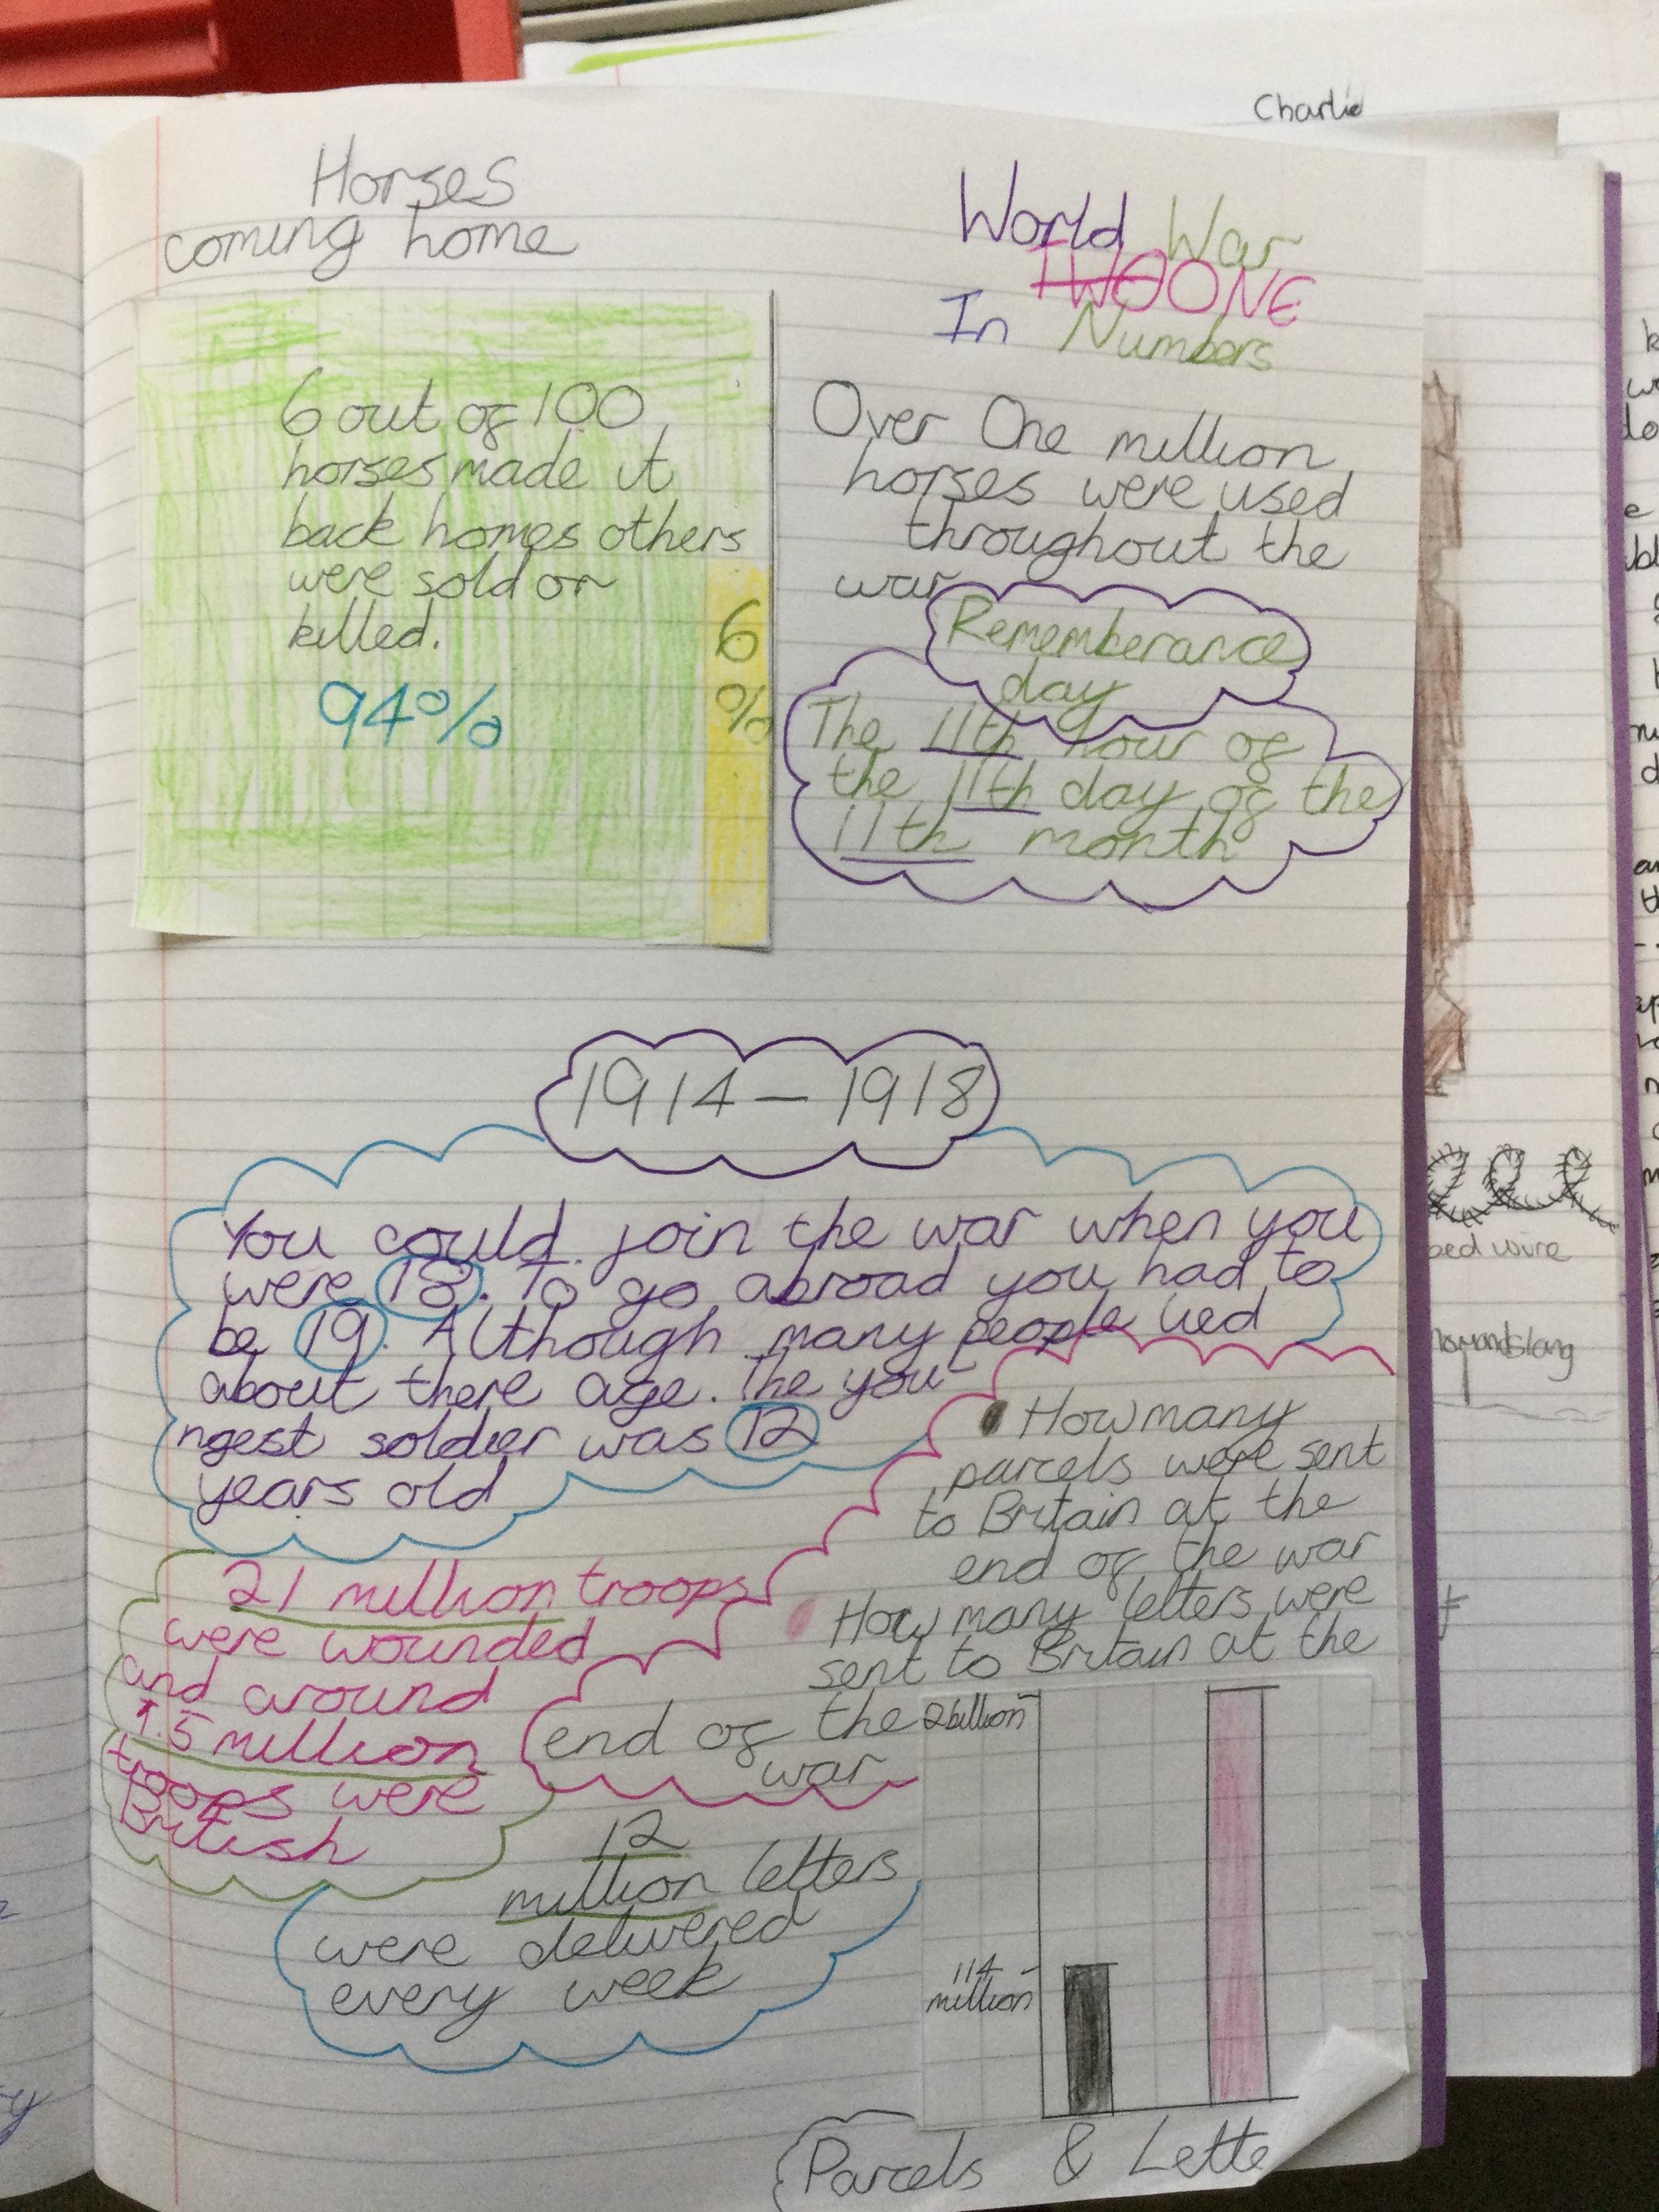 Charlie
Horses
coming home
6 out of 100
horses made it
back homes others
were sold or
killed.
94%
6
%
World War
TWO ONE
In Numbers
Over One million
horses were used
throughout the
war
Rememberance
day
The 11th hour of
the 11th day of the
11th month
1914 – 1918
You could join the war when you
were 18. To go abroad you had to
be 19. Although many people lied
about there age. The you-
ngest soldier was 12
years old
21 million troops
were wounded
and around
1.5 million
troops were
British
How many
parcels were sent
to Britain at the
end of the war
How many letters were
sent to Britain at the
end of the
war
12
million letters
were delivered
every week
2 billion
114
million
Parcels & Lette
bed wire